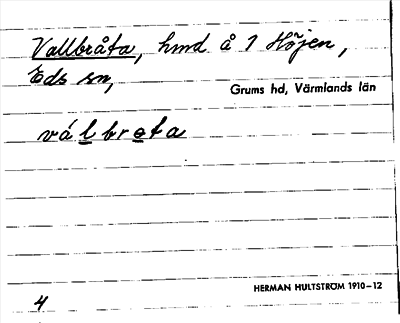 Vallbråta, hmd å 1 Höjen,
Eds sn,
Grums hd, Värmlands län
válbrota
HERMAN HULTSTRÖM 1910–12
4